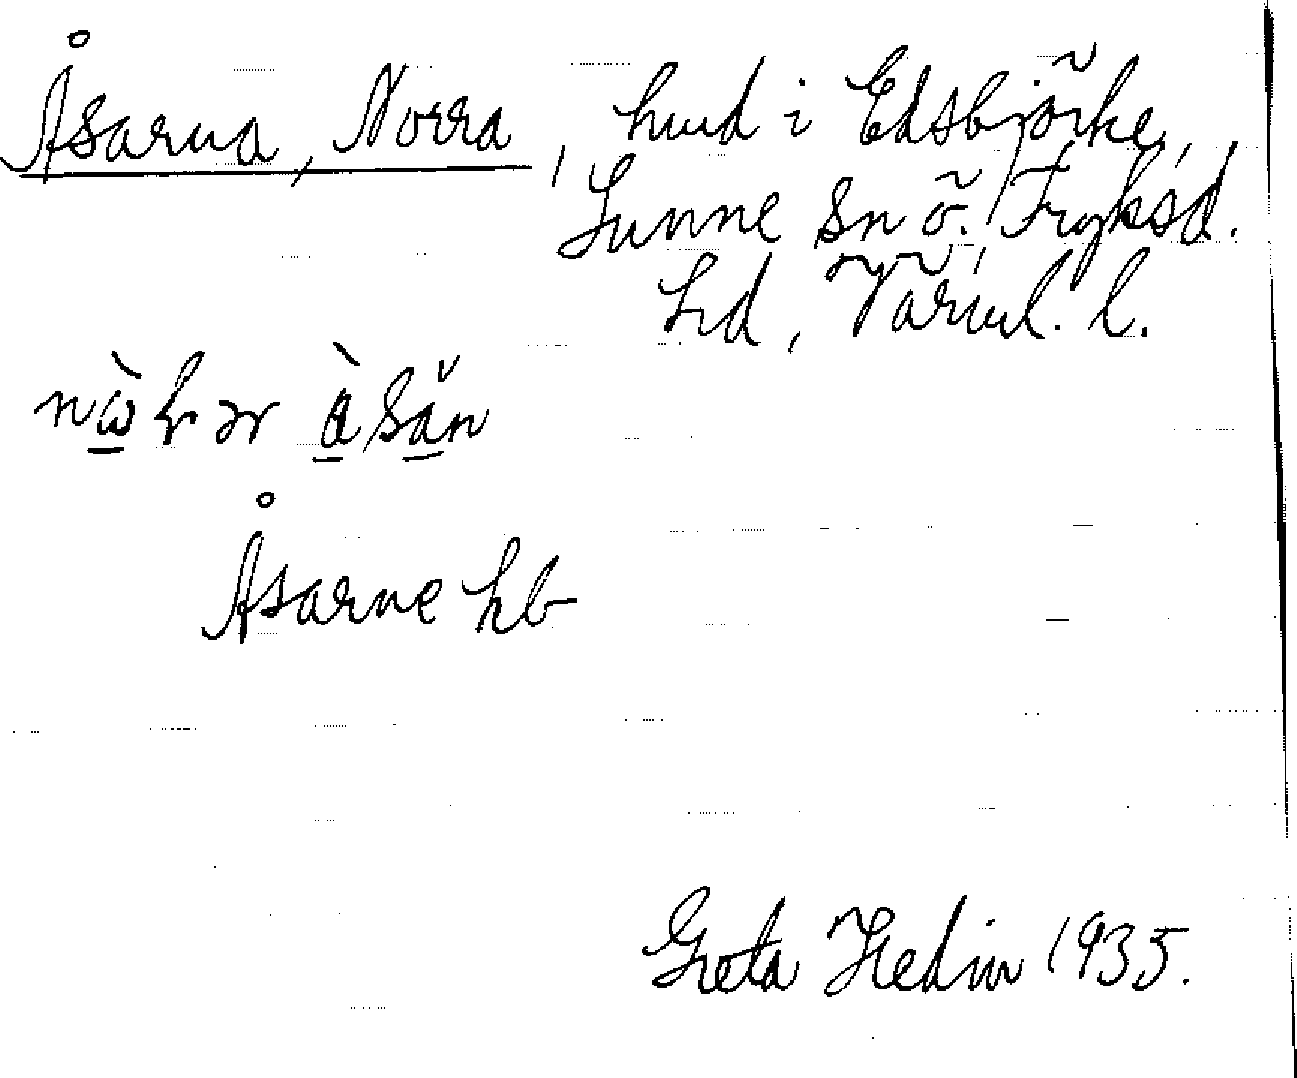 Åsarna, Norra, hmd i Edsbjörke,
Sunne sn ö. Fryksd.
hd, Värml. l.
Åsarne hb
Greta Hedin 1935.